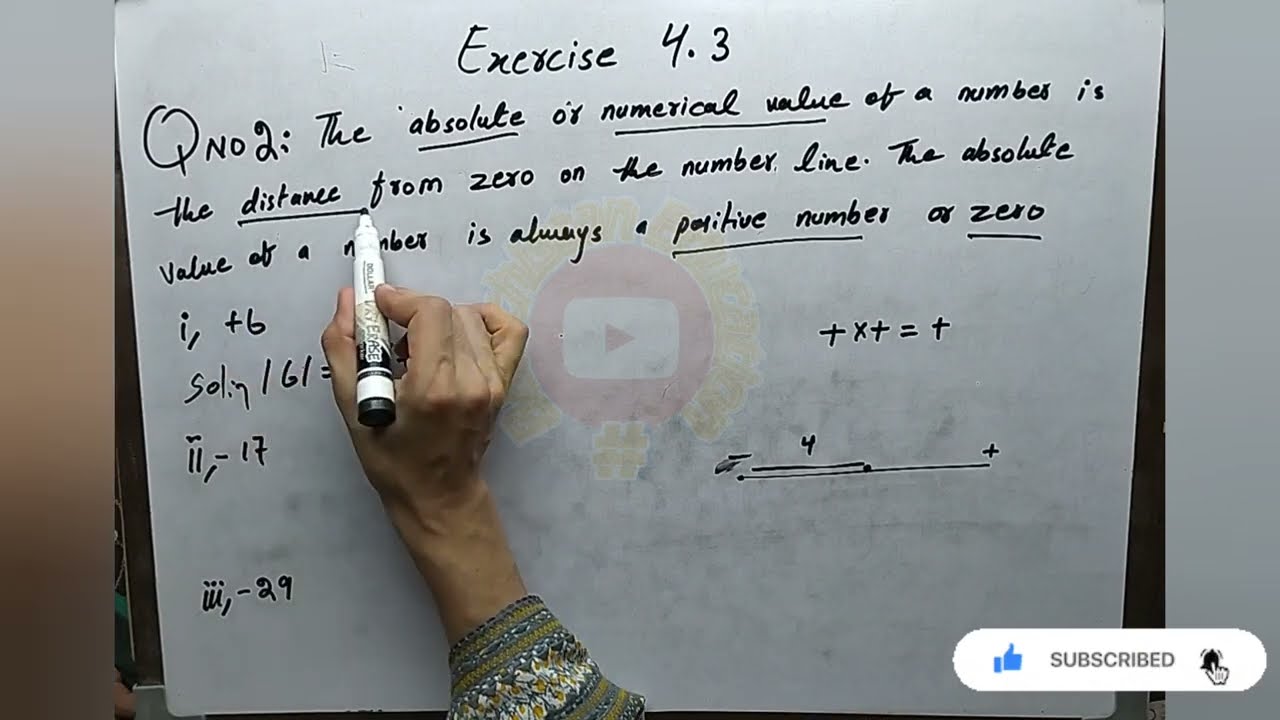 Exercise 4.3
Q NO 2: The absolute or numerical value of a number is
the distance from zero on the number line. The absolute
value of a number is always a positive number or zero
i, +6
+ x + = +
Sol:, |6| =
ii, -17
- 4 +
iii, -29
DOLLAR
DRY ERASE
#
SUBSCRIBED